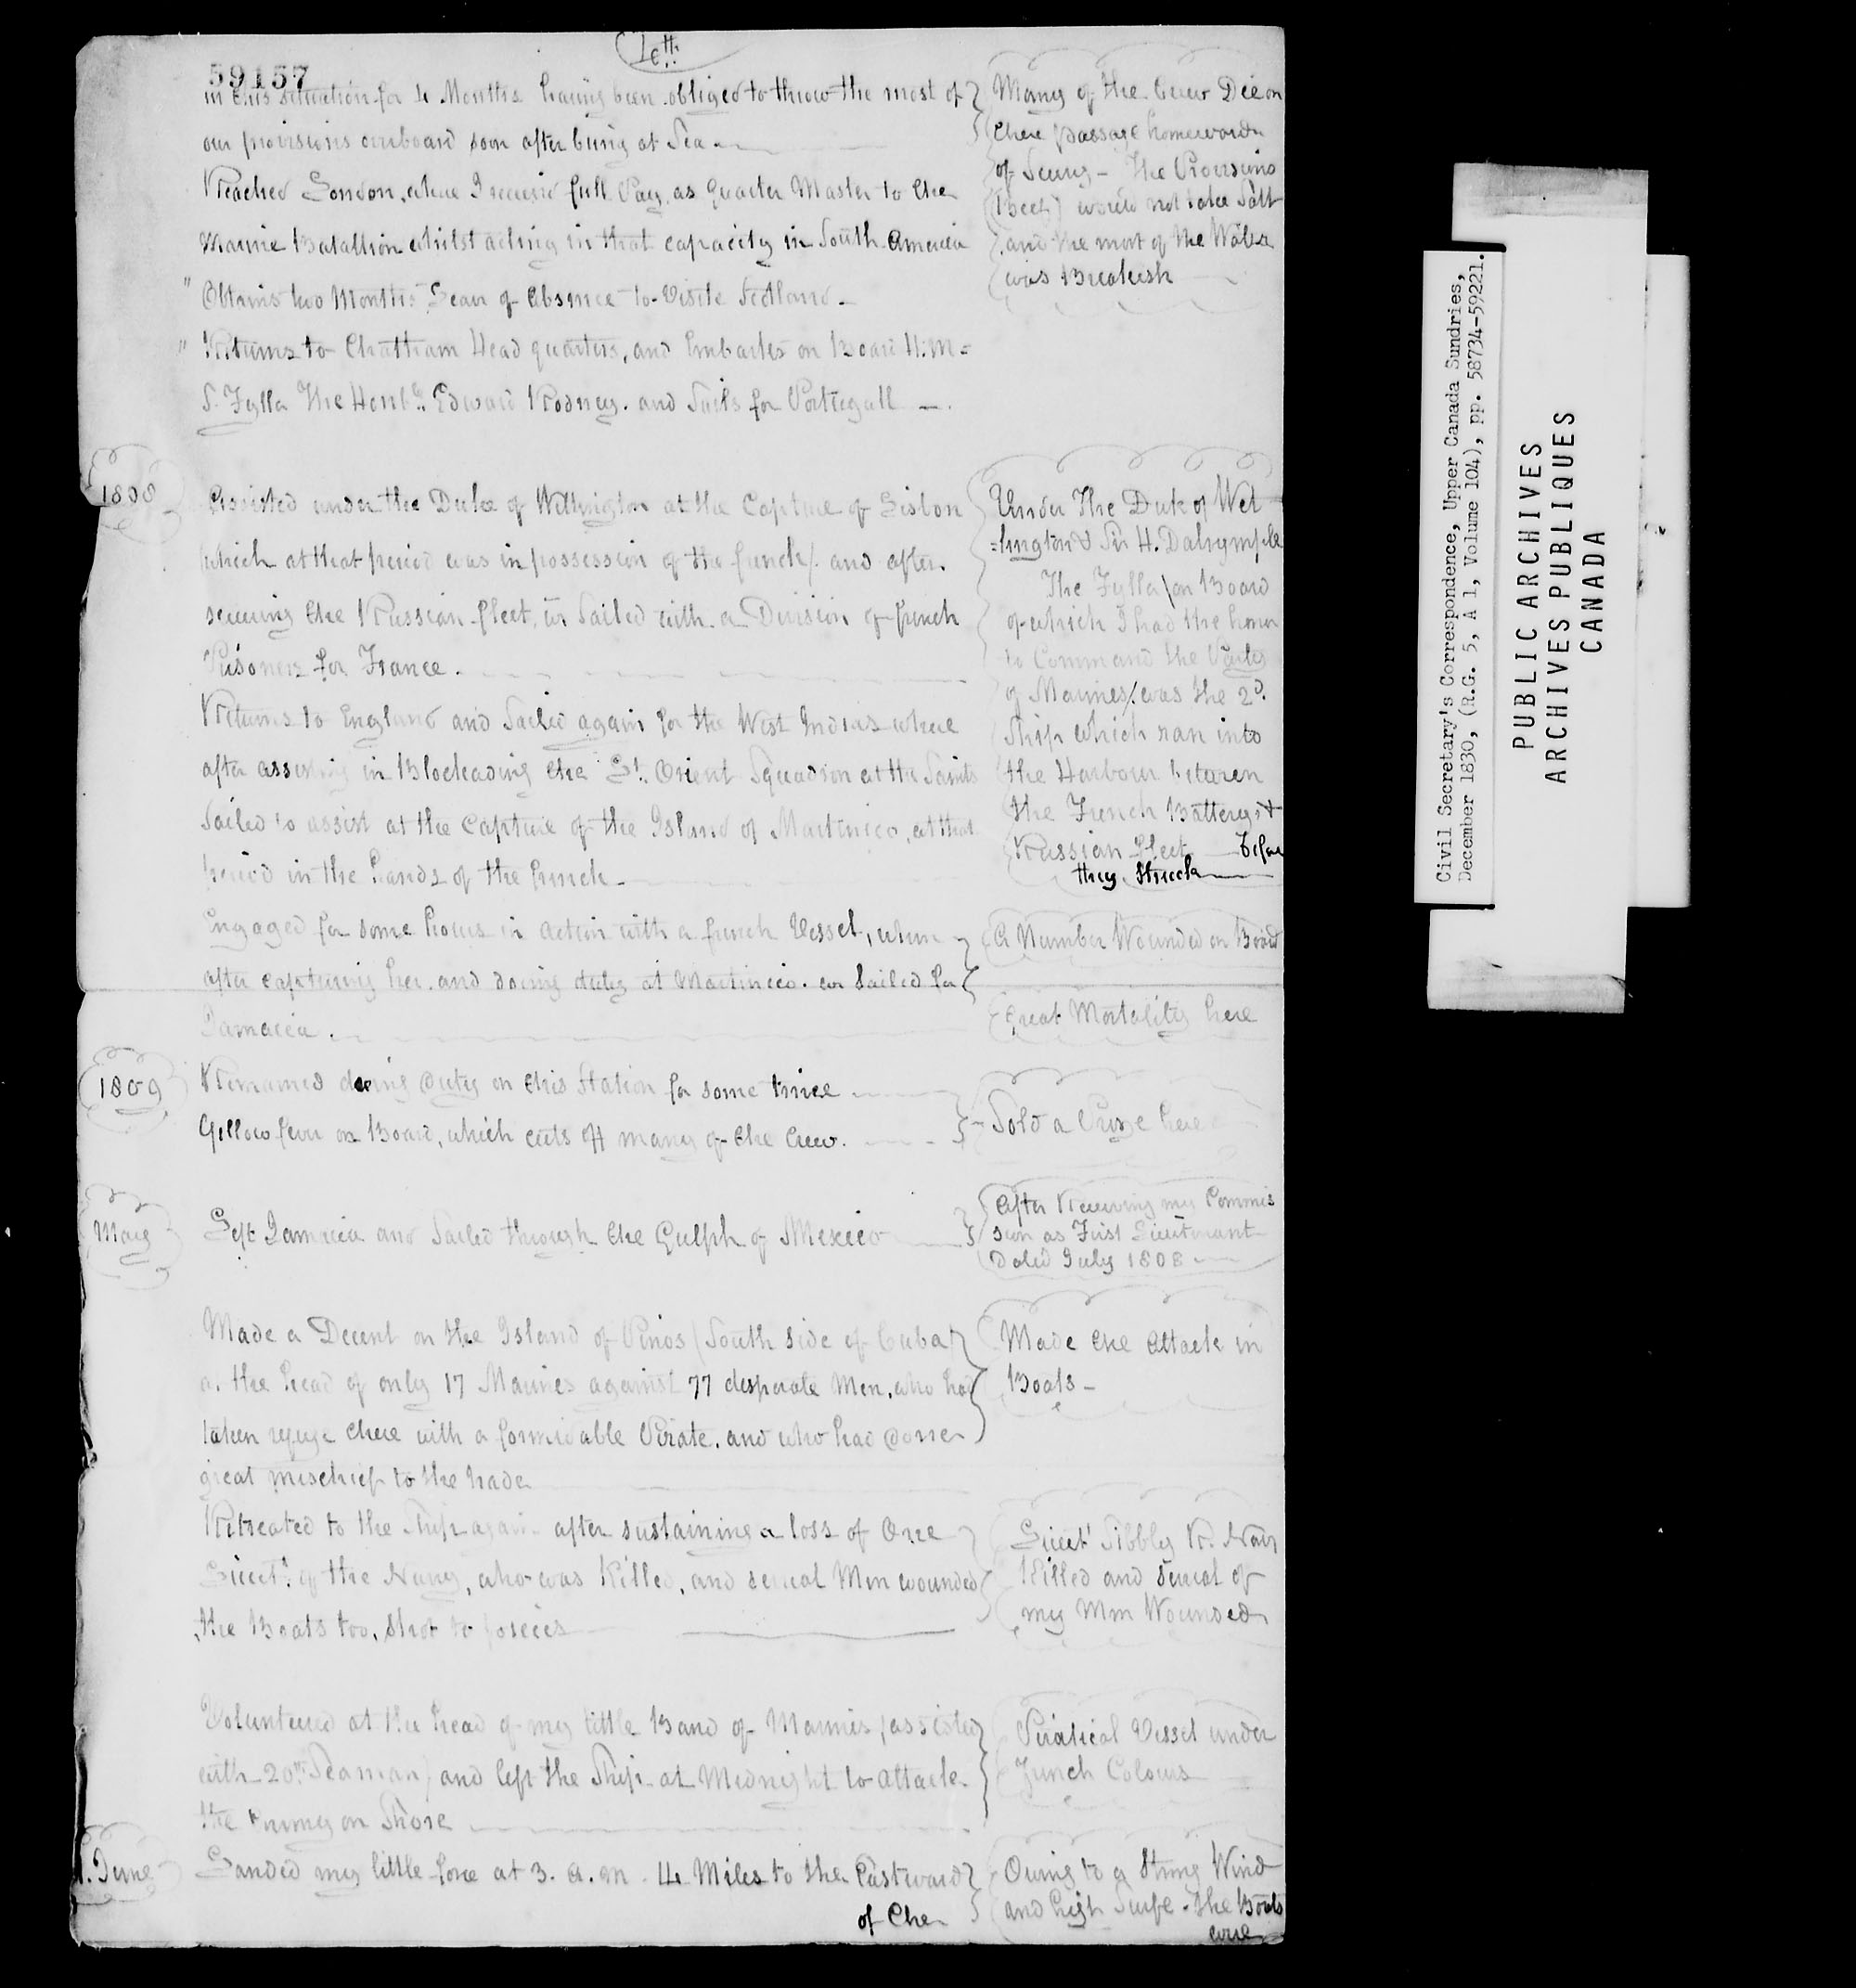 10th
59157
in this situation for 4 Months having been obliged to throw the most of
our provisions overboard soon after being at Sea
Many of the Crew Die on
there passage homewards
of Scurvy - The Provisions
(Beef) would not take Salt
and the most of the Water
was Breakish
Reached London, where I receive full Pay as Quarter Master to the
Marine Batallion whilst acting in that capacity in South America
" Obtains two Months Leave of Absence to Visite Scotland -
" Returns to Chatham Head quarters, and Embarks on Board H.M=
S. Fylla The Honble Edward Rodney. and Sails for Portugall -
1808
Assisted under the Duke of Wellington at the Capture of Lisbon
(which at that period was in possession of the french/. and after
securing the Russian fleet, we Sailed with a Division of french
Prisoners for France.
Under The Duke of Wel
=lington & Sir H. Dalrymple
The Fylla (on Board
of which I had the honor
to Command the Party
of Marines/. was the 2d.
Ship which ran into
the Harbour between
the French Batterys &
Russian fleet before
they Struck
Returns to England and Sailed again for the West Indias where
after assisting in Blockading the St. Orient Squadron at the Saints
Sailed to assist at the Capture of the Island of Martinico, at that
period in the hands of the french
Engaged for some hours in action with a french Vessel, when
after capturing her, and doing duty at Martinico. we Sailed for
Jamacia.
A Number Wounded on Board
Great Mortality here
1809
Remained doeing duty on this Station for some time
Yellow fever on Board, which cuts off many of the Crew.
Sold a Prize here
May
Left Jamacia and Sailed through the Gulph of Mexico
After Receiving my Commis
sion as First Lieutenant
Dated July 1808
Made a Decent on the Island of Pinos (South Side of Cuba)
at the head of only 17 Marines against 77 desperate Men, who had
taken refuge there with a formidable Pirate. and who had done
great mischief to the trade
Made the Attack in
Boats -
Retreated to the Ship again after sustaining a loss of One
Lieut. of the Navy, who was Killed, and several Men wounded
the Boats too, Shot to pieces
Lieut Sibbly R. Navy
Killed and several of
my Men Wounded
Volunteered at the head of my little Band of Marines (assisted
with 20 Seaman) and left the Ship at Midnight to attack
the Enemy on Shore
Piratical Vessel under
French Colours
1. June
Landed my little force at 3. A.M. 4 Miles to the Eastward
of the
Owing to a Strong Wind
and high Surfe - the Boats
were
Civil Secretary's Correspondence, Upper Canada Sundries,
December 1830, (R.G. 5, A 1, Volume 104), pp. 58734-59221.
PUBLIC ARCHIVES
ARCHIVES PUBLIQUES
CANADA